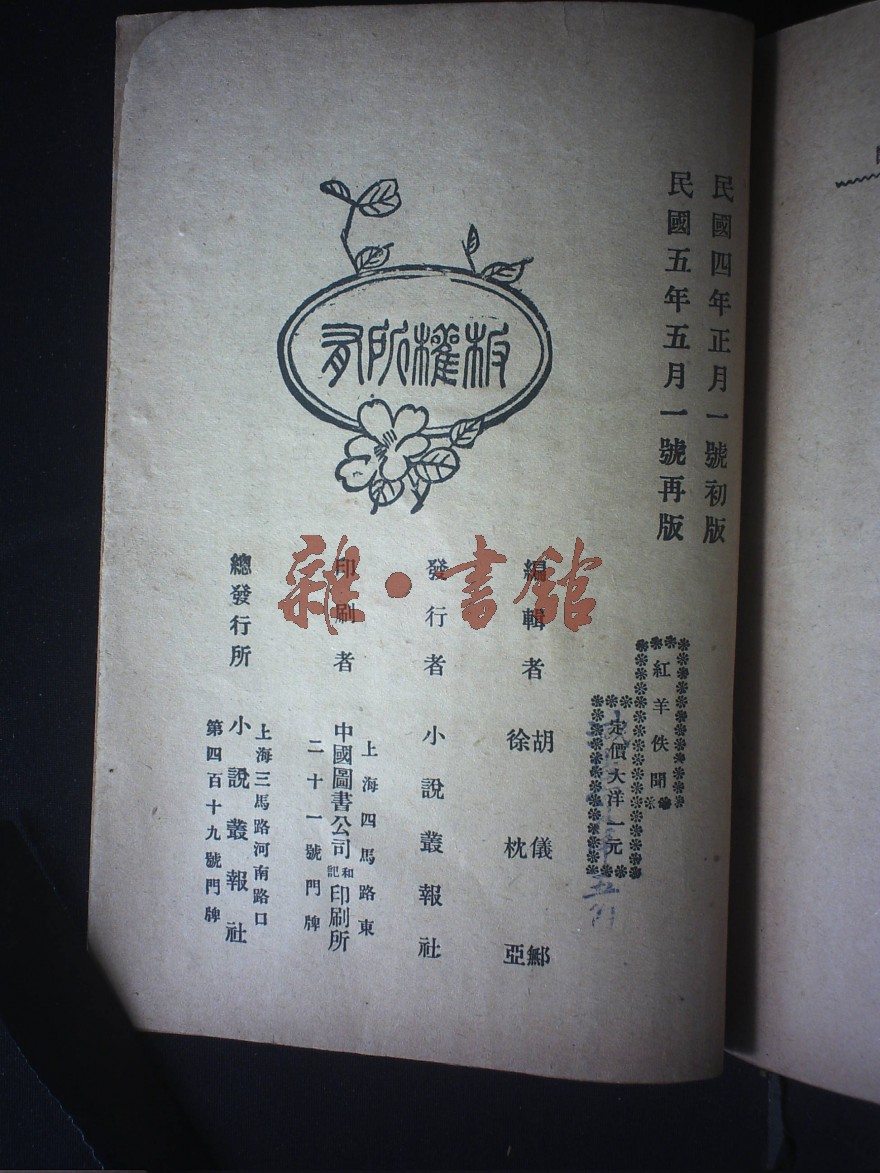 民國四年正月一號初版
民國五年五月一號再版
紅羊佚聞
定價大洋一元
版權所有
編輯者
胡儀鄦
徐枕亞
發行者
小說叢報社
印刷者
上海四馬路東
中國圖書公司和記印刷所
二十一號門牌
總發行所
上海三馬路河南路口
小說叢報社
第四百十九號門牌
雜·書館